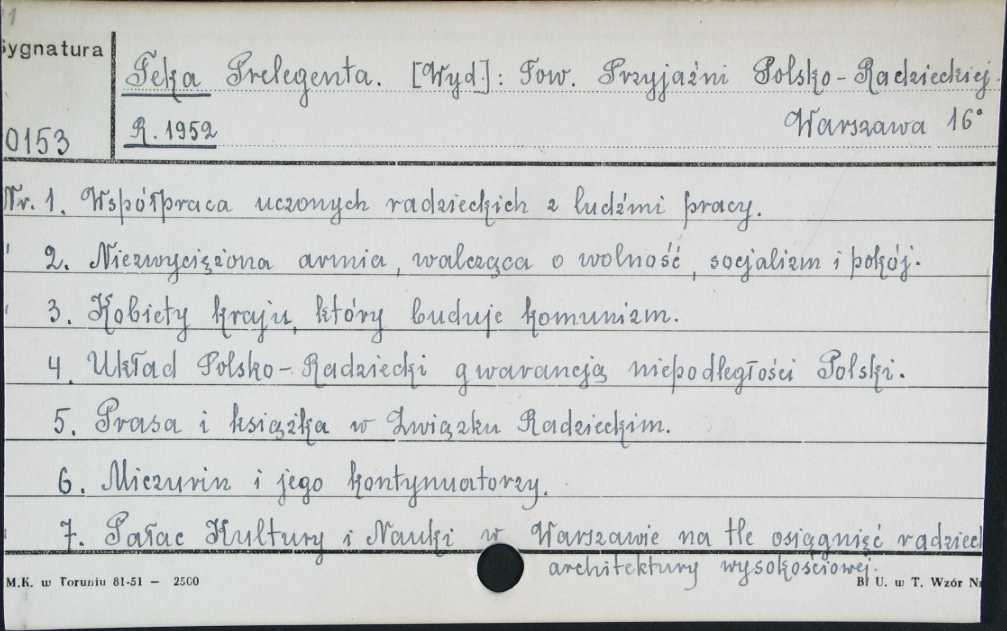 1
Sygnatura
Teka Prelegenta. [Wyd.]: Tow. Przyjaźni Polsko-Radzieckiej.
R. 1952 Warszawa 16°
0153
Nr. 1. Współpraca uczonych radzieckich z ludźmi pracy.
" 2. Niezwyciężona armia, walcząca o wolność, socjalizm i pokój.
" 3. Kobiety kraju, który buduje komunizm.
4. Układ Polsko-Radziecki gwarancją niepodległości Polski.
5. Prasa i książka w Związku Radzieckim.
6. Miczurin i jego kontynuatorzy.
" 7. Pałac Kultury i Nauki w Warszawie na tle osiągnięć radziec
architektury wysokościowej.
M.K. w Toruniu 81-51 — 2500
B. U. w T. Wzór Nr